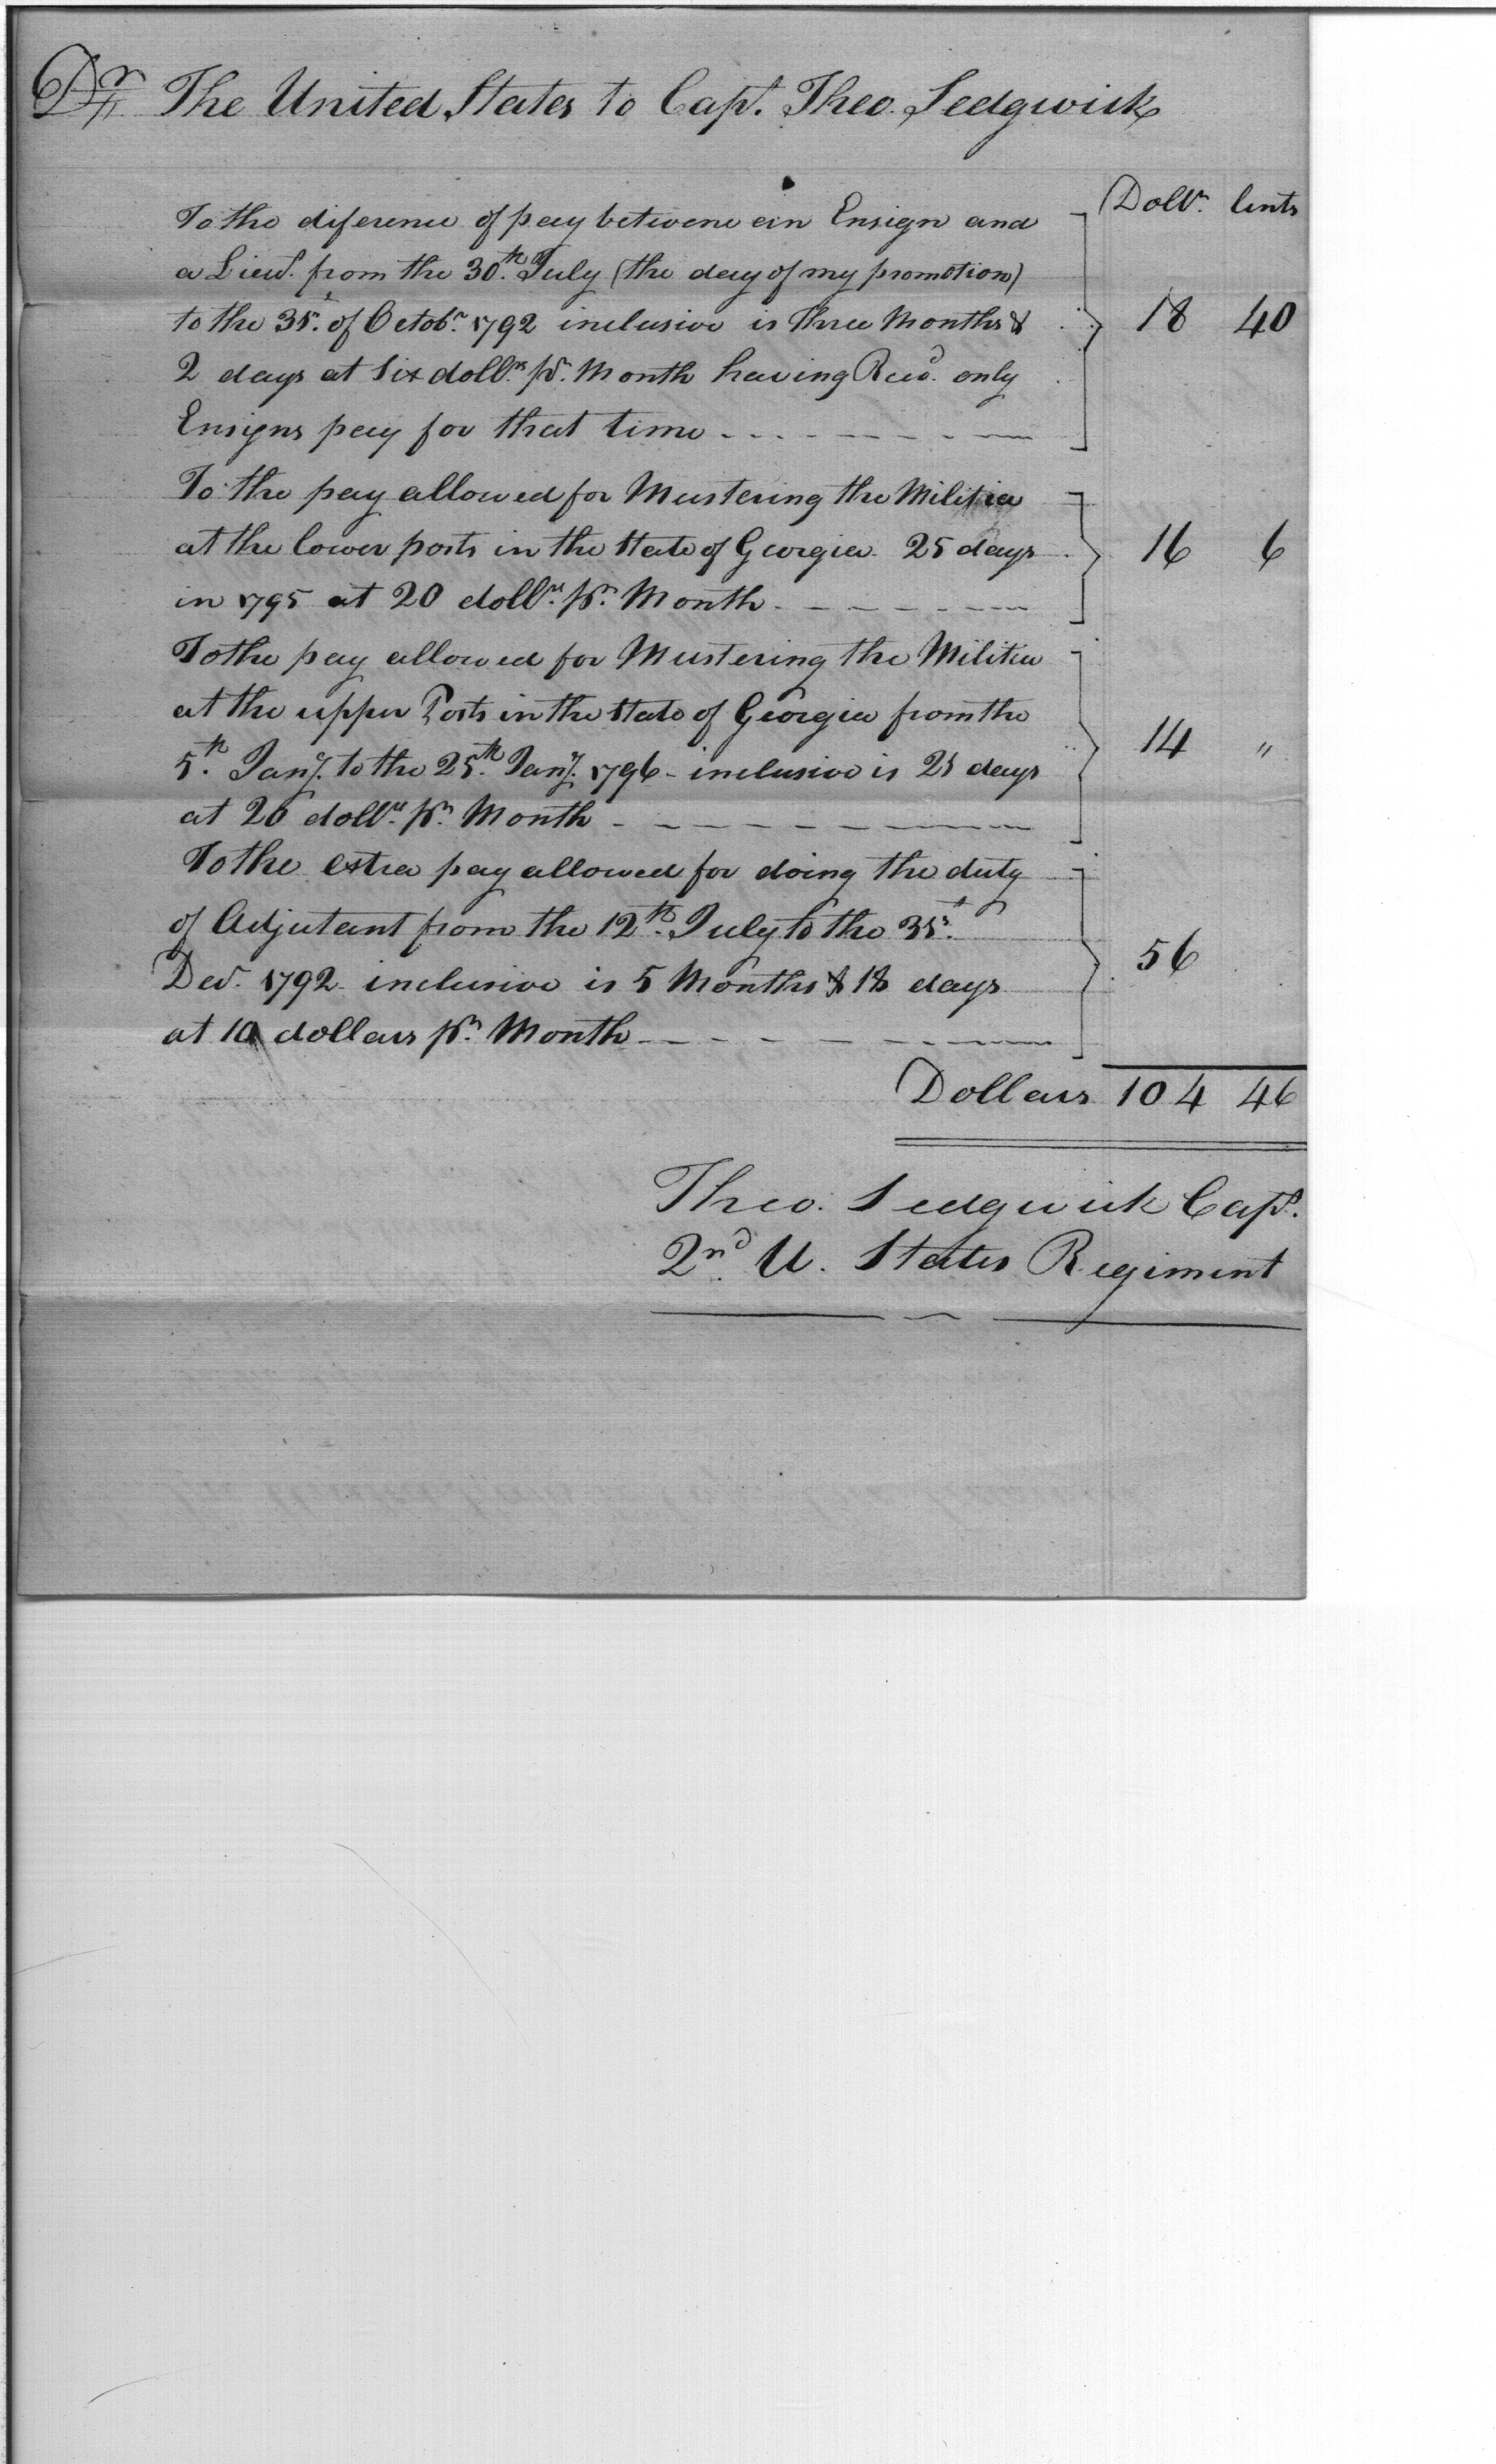 Dr The United States to Capt. Theo. Sedgwick
Dollrs. Cents
To the diference of pay betwene an Ensign and
a Lieut. from the 30th. July (the day of my promotion)
to the 31st. of Octobr. 1792 inclusive is three Months &
2 days at six dollrs. pr. Month having Recd. only
Ensigns pay for that time 18 40
To the pay allowed for Mustering the Militia
at the lower posts in the state of Georgia 25 days 16 6
in 1795 at 20 dollrs. pr. Month
To the pay allowed for Mustering the Militia
at the upper Posts in the state of Georgia from the
5th. Jany. to the 25th. Jany. 1796 - inclusive is 21 days 14 "
at 20 dollrs. pr. Month
To the extra pay allowed for doing the duty
of Adjutant from the 12th. July to the 31st.
Decr. 1792 inclusive is 5 Months & 18 days 56
at 10 dollars pr. Month
Dollars 104 46
Theo. Sedgwick Capt.
2nd. U. States Regiment